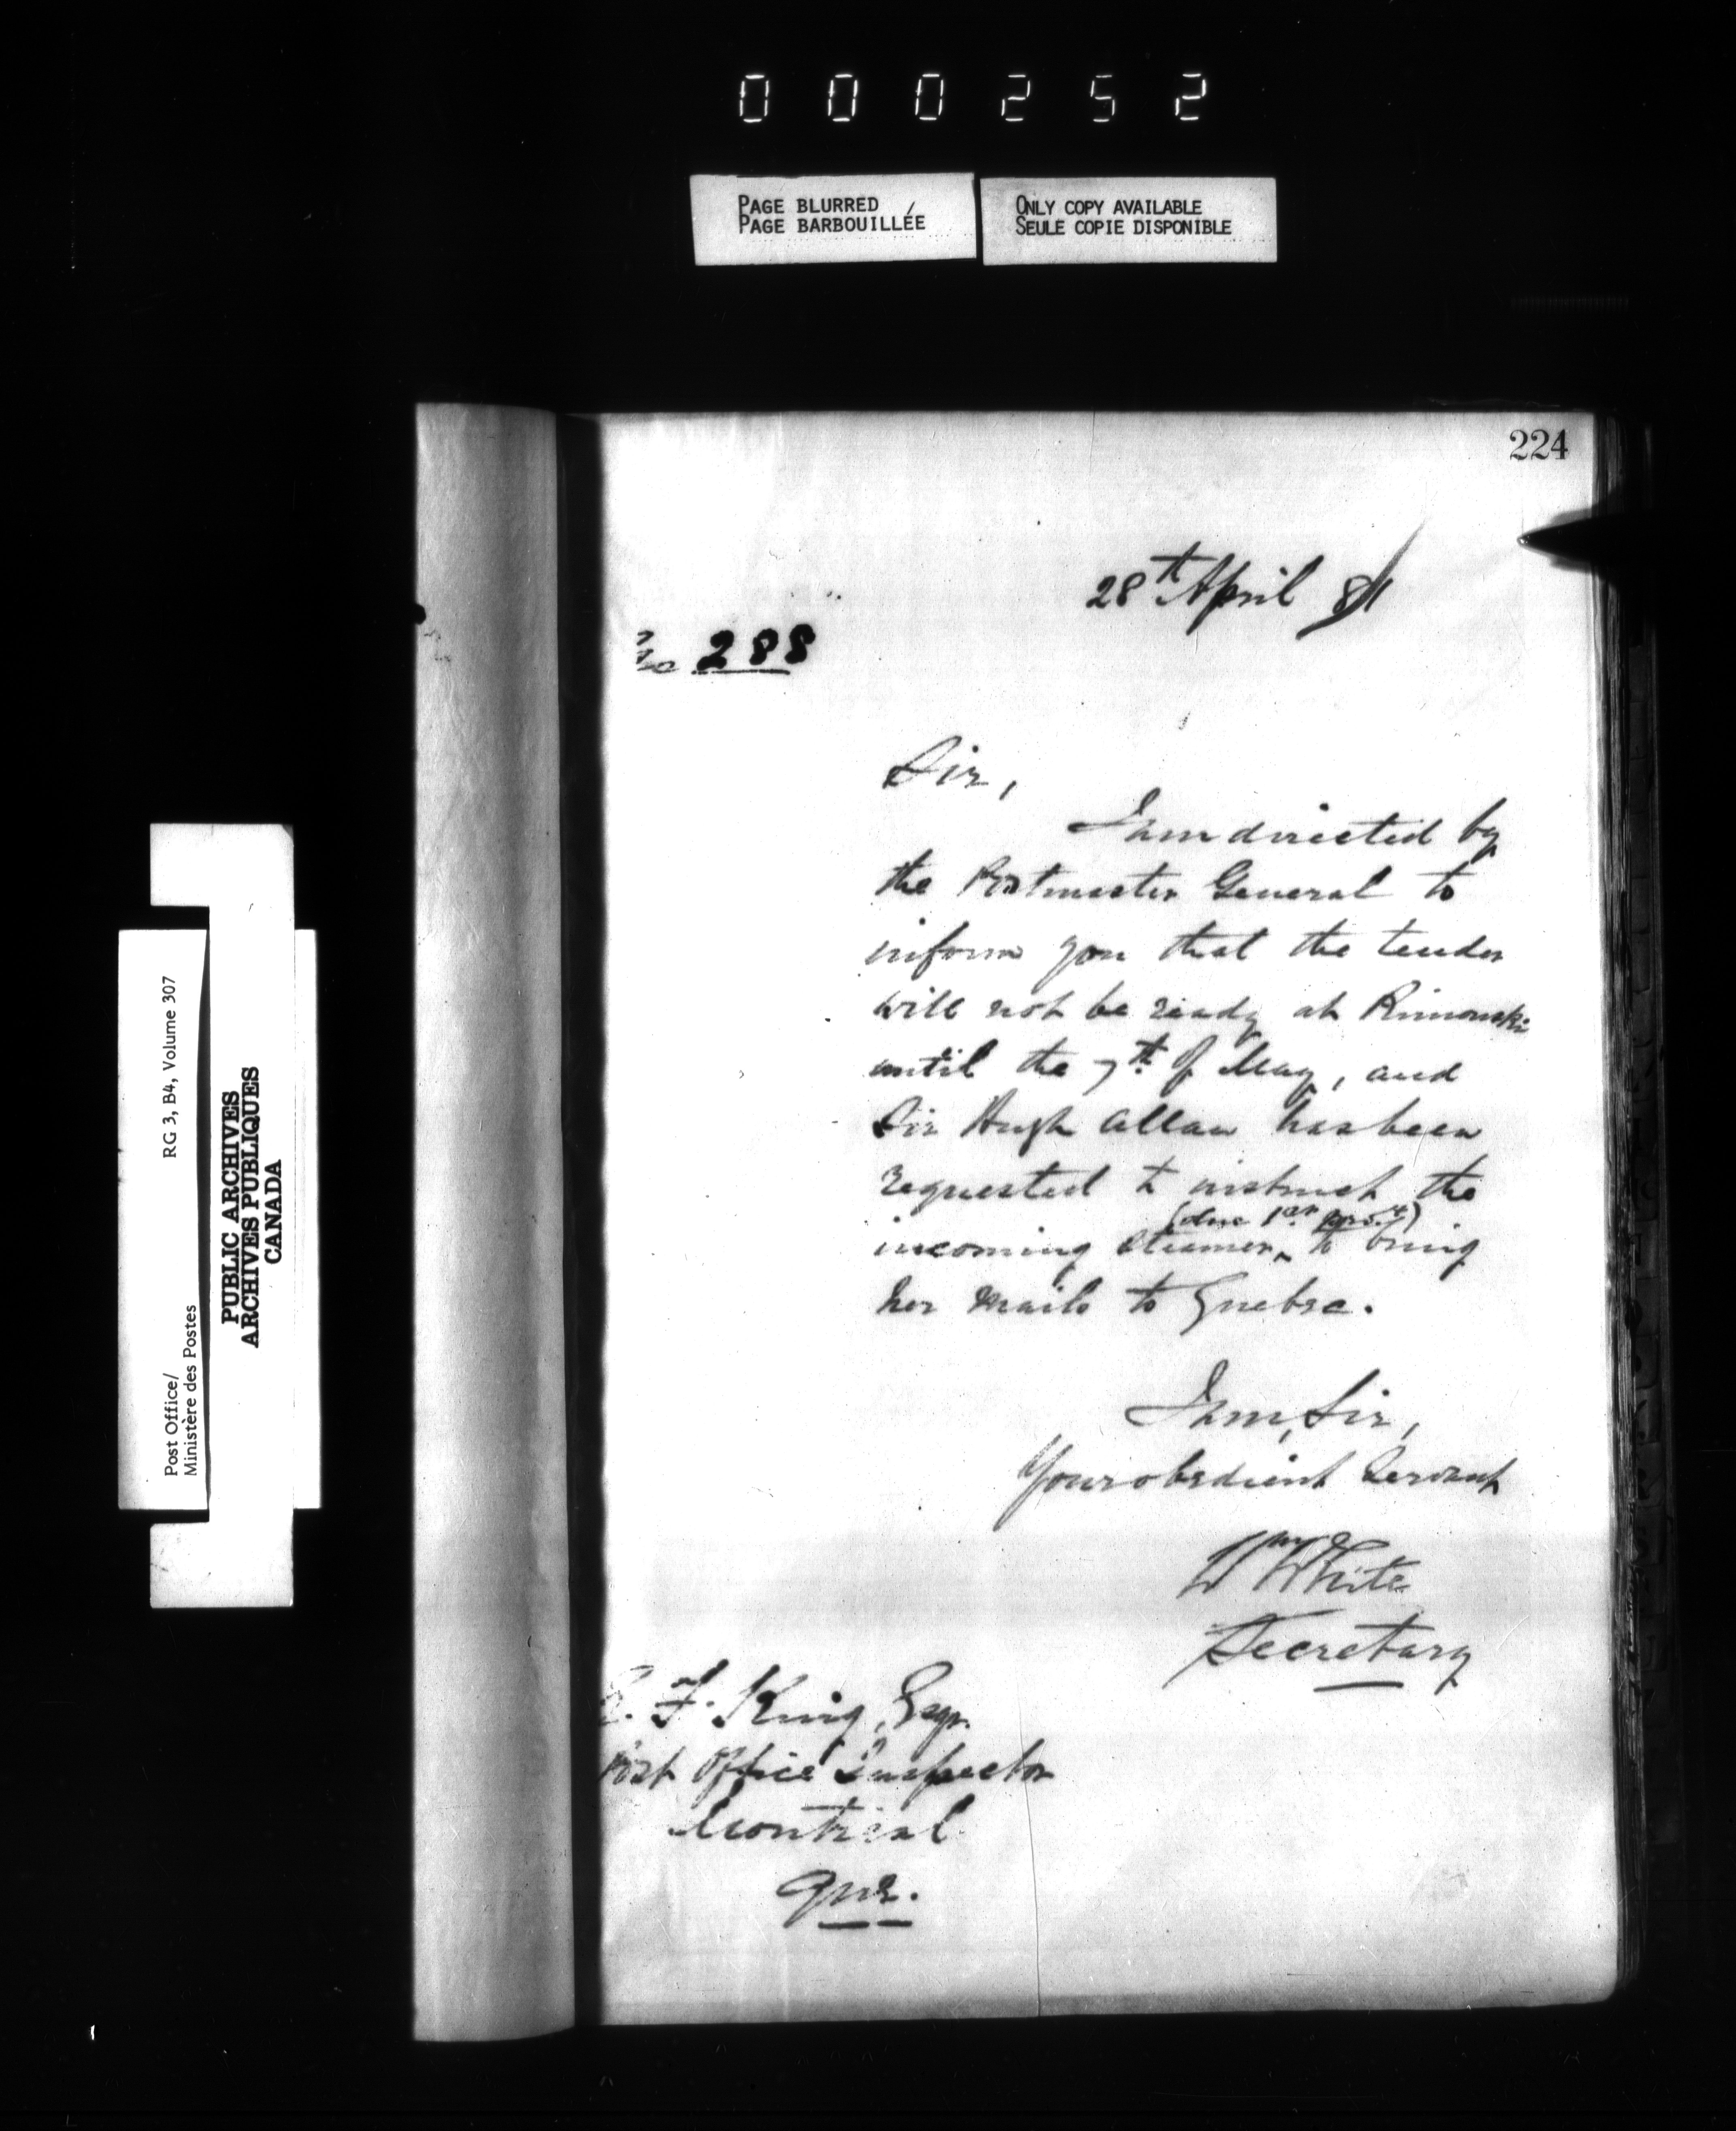 000252
PAGE BLURRED
PAGE BARBOUILLÉE
ONLY COPY AVAILABLE
SEULE COPIE DISPONIBLE
224
28th April 81
No 288
Sir,
I am directed by
the Postmaster General to
inform you that the tender
will not be ready at Rimouski
until the 7th of May, and
Sir Hugh Allan has been
requested to instruct the
(due 1st prox.)
incoming steamer ‸ to bring
her mails to Quebec.
I am, Sir,
Your obedient Servant
Wm White
Secretary
F. King, Esqr.
Post Office Inspector
Montreal
Que.
Post Office/
Ministère des Postes
RG 3, B4, Volume 307
PUBLIC ARCHIVES
ARCHIVES PUBLIQUES
CANADA